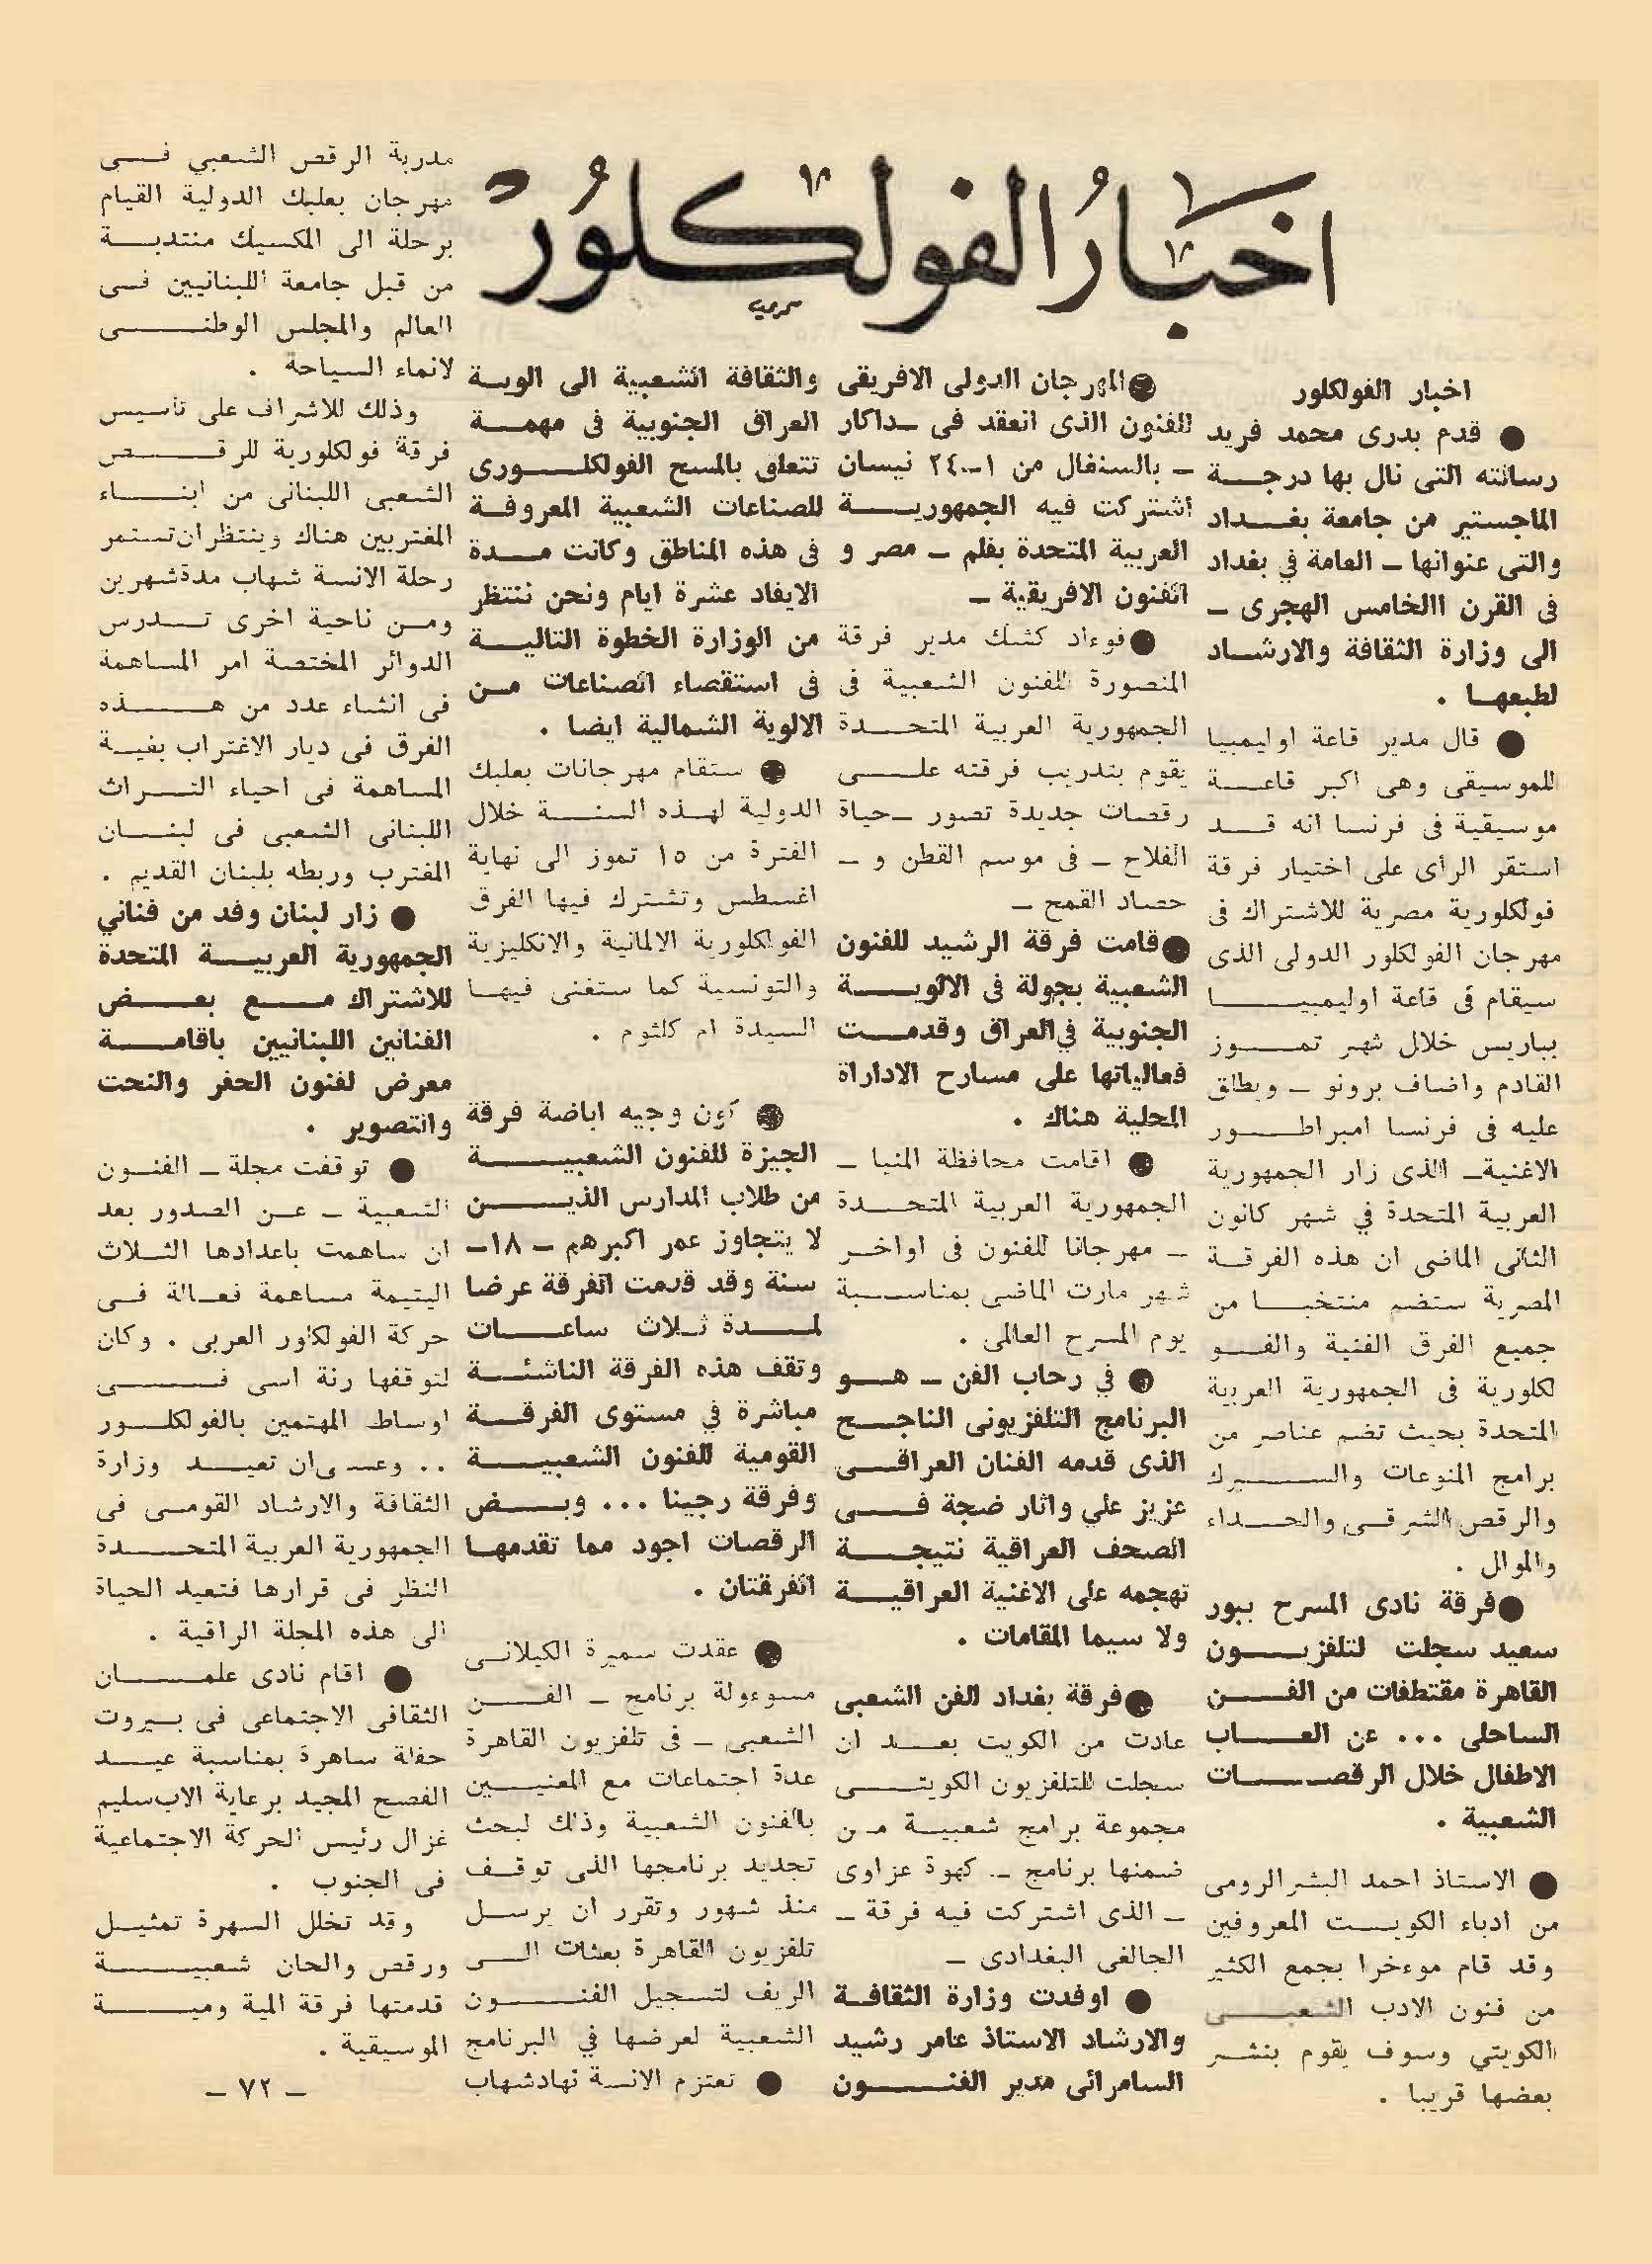 اخبار الفولكلور
اخبار الفولكلور
● قدم بدرى محمد فريد
رسالته التى نال بها درجة
الماجستير من جامعة بغداد
والتى عنوانها ـ العامة في بغداد
فى القرن االخامس الهجرى ـ
الى وزارة الثقافة والارشاد
لطبعها .
● قال مدير قاعة اوليمبيا
للموسيقى وهى اكبر قاعة
موسيقية فى فرنسا انه قد
استقر الرأى على اختيار فرقة
فولكلورية مصرية للاشتراك فى
مهرجان الفولكلور الدولى الذى
سيقام فى قاعة اوليمبيا
بباريس خلال شهر تموز
القادم واضاف برونو ـ ويطلق
عليه فى فرنسا امبراطور
الاغنية ـ الذى زار الجمهورية
العربية المتحدة في شهر كانون
الثانى الماضى ان هذه الفرقة
المصرية ستضم منتخبا من
جميع الفرق الفنية والفو
لكلورية فى الجمهورية العربية
المتحدة بحيث تضم عناصر من
برامج المنوعات والسيرك
والرقص الشرقى والحداء
والموال .
● فرقة نادى المسرح ببور
سعيد سجلت لتلفزيون
القاهرة مقتطفات من الفن
الساحلى ... عن العاب
الاطفال خلال الرقصات
الشعبية .
● الاستاذ احمد البشر الرومى
من ادباء الكويت المعروفين
وقد قام موءخرا بجمع الكثير
من فنون الادب الشعبى
الكويتي وسوف يقوم بنشر
بعضها قريبا .
● المهرجان الدولى الافريقى
للفنون الذى انعقد فى ـ داكار
ـ بالسنغال من ١ـ٢٤ نيسان
اشتركت فيه الجمهورية
العربية المتحدة بفلم ـ مصر و
الفنون الافريقية ـ
● فوءاد كشك مدير فرقة
المنصورة للفنون الشعبية فى
الجمهورية العربية المتحدة
يقوم بتدريب فرقته على
رقصات جديدة تصور ـ حياة
الفلاح ـ فى موسم القطن و ـ
حصاد القمح ـ
● قامت فرقة الرشيد للفنون
الشعبية بجولة فى الالوية
الجنوبية في العراق وقدمت
فعالياتها على مسارح الاداراة
المحلية هناك .
● اقامت محافظة المنيا ـ
الجمهورية العربية المتحدة
ـ مهرجانا للفنون فى اواخر
شهر مارت الماضى بمناسبة
يوم المسرح العالمى .
● في رحاب الفن ـ هو
البرنامج التلفزيونى الناجح
الذى قدمه الفنان العراقى
عزيز علي واثار ضجة فى
الصحف العراقية نتيجة
تهجمه على الاغنية العراقية
ولا سيما المقامات .
● فرقة بغداد للفن الشعبى
عادت من الكويت بعد ان
سجلت للتلفزيون الكويتى
مجموعة برامج شعبية من
ضمنها برنامج ـ كهوة عزاوى
ـ الذى اشتركت فيه فرقة ـ
الجالغى البغدادى ـ
● اوفدت وزارة الثقافة
والارشاد الاستاذ عامر رشيد
السامرائى مدير الفنون
والثقافة الشعبية الى الوية
العراق الجنوبية فى مهمة
تتعلق بالمسح الفولكلورى
للصناعات الشعبية المعروفة
فى هذه المناطق وكانت مدة
الايفاد عشرة ايام ونحن ننتظر
من الوزارة الخطوة التالية
فى استقصاء الصناعات من
الالوية الشمالية ايضا .
● ستقام مهرجانات بعلبك
الدولية لهذه السنة خلال
الفترة من ١٥ تموز الى نهاية
اغسطس وتشترك فيها الفرق
الفولكلورية الالمانية والانكليزية
والتونسية كما ستغنى فيها
السيدة ام كلثوم .
● كون وجيه اباضة فرقة
الجيزة للفنون الشعبية
من طلاب المدارس الذين
لا يتجاوز عمر اكبرهم ـ ١٨ـ
سنة وقد قدمت الفرقة عرضا
لمدة ثلاث ساعات
وتقف هذه الفرقة الناشئة
مباشرة في مستوى الفرقة
القومية للفنون الشعبية
وفرقة رجينا ... وبض
الرقصات اجود مما تقدمها
الفرقتان .
● عقدت سميرة الكيلانى
مسوءولة برنامج ـ الفن
الشعبى ـ فى تلفزيون القاهرة
عدة اجتماعات مع المعنيين
بالفنون الشعبية وذلك لبحث
تجديد برنامجها الذى توقف
منذ شهور وتقرر ان يرسل
تلفزيون القاهرة بعثات الى
الريف لتسجيل الفنون
الشعبية لعرضها في البرنامج
● تعتزم الانسة نهاد شهاب
مدربة الرقص الشعبي فى
مهرجان بعلبك الدولية القيام
برحلة الى المكسيك منتدبة
من قبل جامعة اللبنانيين فى
العالم والمجلس الوطنى
لانماء السياحة .
وذلك للاشراف على تأسيس
فرقة فولكلورية للرقص
الشعبى اللبنانى من ابناء
المغتربين هناك وينتظر ان تستمر
رحلة الانسة شهاب مدة شهرين
ومن ناحية اخرى تدرس
الدوائر المختصة امر المساهمة
فى انشاء عدد من هذه
الفرق فى ديار الاغتراب بغية
المساهمة فى احياء التراث
اللبنانى الشعبى فى لبنان
المغترب وربطه بلبنان القديم .
● زار لبنان وفد من فناني
الجمهورية العربية المتحدة
للاشتراك مع بعض
الفنانين اللبنانيين باقامة
معرض لفنون الحفر والنحت
والتصوير .
● توقفت مجلة ـ الفنون
الشعبية ـ عن الصدور بعد
ان ساهمت باعدادها الثلاث
اليتيمة مساهمة فعالة فى
حركة الفولكلور العربى . وكان
لتوقفها رنة اسى فى
اوساط المهتمين بالفولكلور
.. وعسى ان تعيد وزارة
الثقافة والارشاد القومى فى
الجمهورية العربية المتحدة
النظر فى قرارها فتعيد الحياة
الى هذه المجلة الراقية .
● اقام نادى علمان
الثقافى الاجتماعى فى بيروت
حفلة ساهرة بمناسبة عيد
الفصح المجيد برعاية الاب سليم
غزال رئيس الحركة الاجتماعية
فى الجنوب .
وقد تخلل السهرة تمثيل
ورقص والحان شعبية
قدمتها فرقة المية ومية
الموسيقية .
ـ ٧٢ ـ